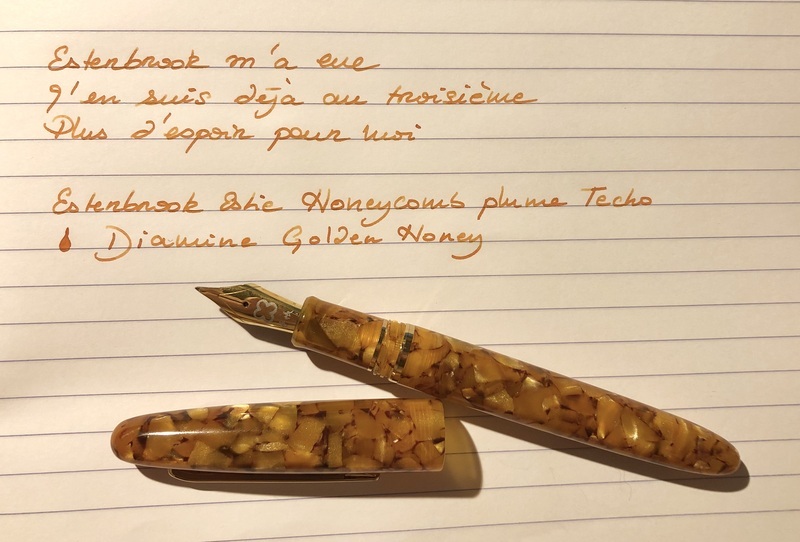 Estenbrook m'a eue
J'en suis déjà au troisième
Plus d'espoir pour moi
Estenbrook Estie Honeycomb plume Techo
Diamine Golden Honey